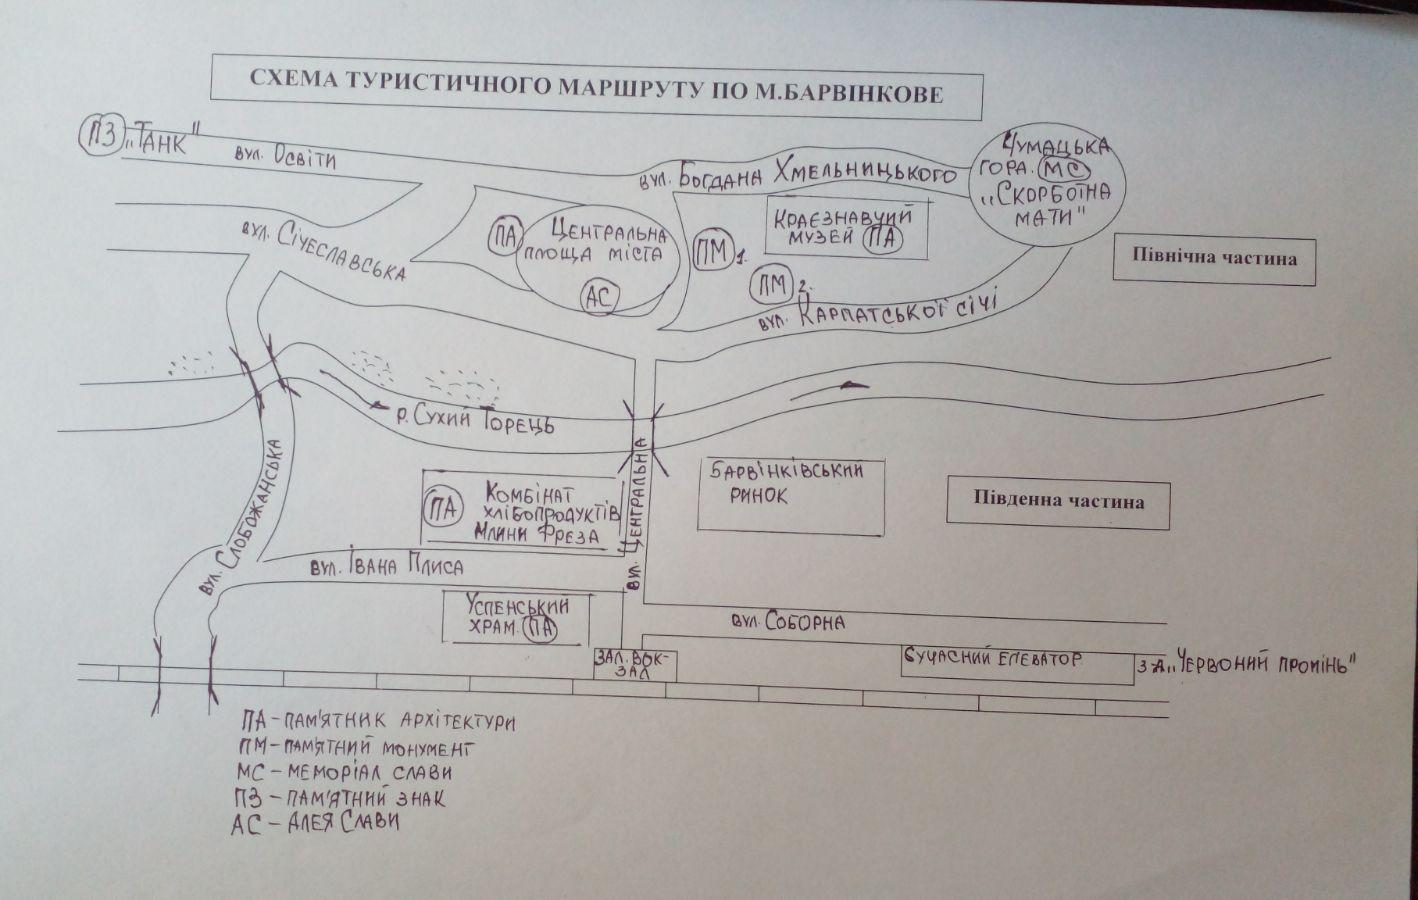 СХЕМА ТУРИСТИЧНОГО МАРШРУТУ ПО М.БАРВІНКОВЕ
ПЗ „ТАНК"
вул. Освіти
вул. Богдана Хмельницького
Чумацька
гора. МС
„Скорботна
мати"
вул. Січеславська
ПА
Центральна
площа міста
АС
ПМ 1.
Краєзнавчий
музей ПА
ПМ 2.
вул. Карпатської січі
Північна частина
р. Сухий Торець
вул. Слобожанська
вул. Центральна
ПА
Комбінат
хлібопродуктів
Млини Фрєза
Барвінківський
ринок
Південна частина
вул. Івана Плиса
Успенський
храм. ПА
вул. Соборна
Зал. вок-
зал
Сучасний елеватор
з-д „Червоний промінь"
ПА – пам'ятник архітектури
ПМ – пам'ятний монумент
МС – меморіал слави
ПЗ – пам'ятний знак
АС – Алея Слави